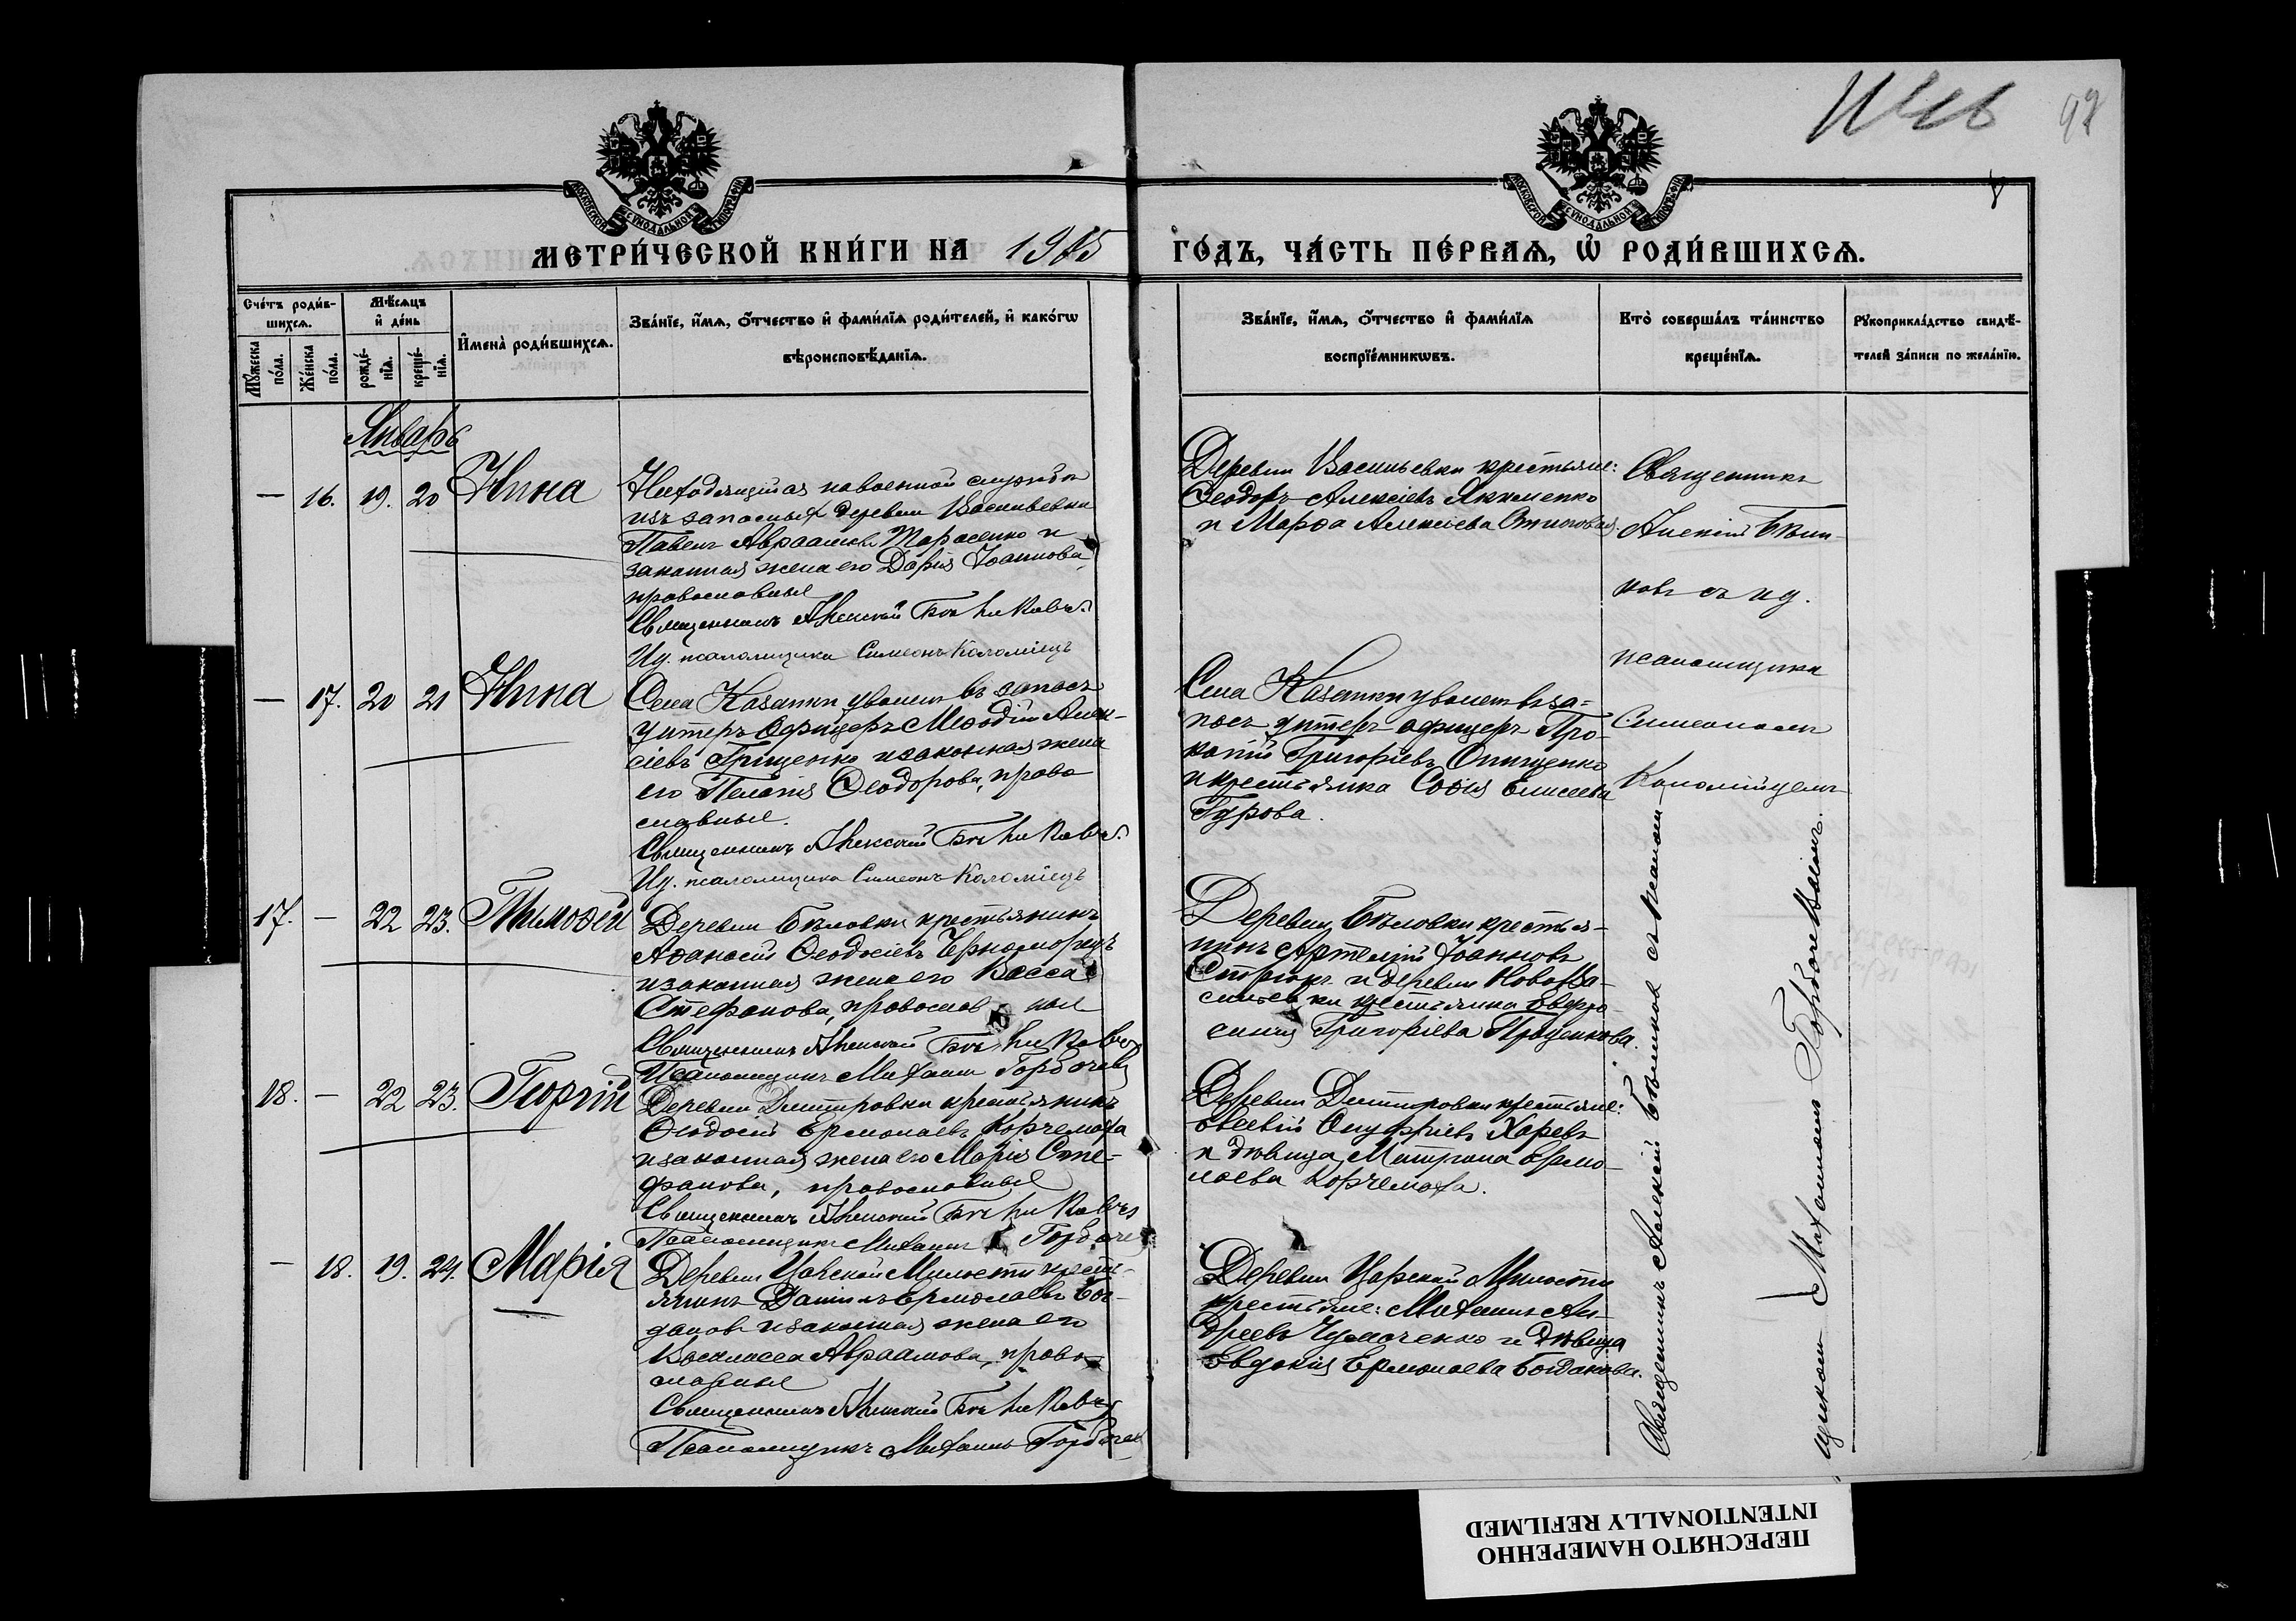 98
МОСКОВСКОЙ СѴНОДАЛЬНОЙ ТИПОГРАФІИ
МОСКОВСКОЙ СѴНОДАЛЬНОЙ ТИПОГРАФІИ
МЕТРИ́ЧЕСКОЙ КНИ́ГИ НА 1905 ГО́ДЪ, ЧА́СТЬ ПЕ́РВАѦ, Ѽ РОДИ́ВШИХСѦ.
Сче́тъ роди́в-
шихсѧ.
Мꙋ́жеска
по́ла.
Же́нска
по́ла.
Мѣ́сѧцъ
и҆ де́нь
рожде́-
нїѧ.
креще́-
нїѧ.
И҆мена̀ роди́вшихсѧ.
Зва́нїе, и҆́мѧ, ѻ҆́тчество и҆ фами́лїѧ роди́телей, и҆ како́гѡ
вѣроисповѣ́данїѧ.
Зва́нїе, и҆́мѧ, ѻ҆́тчество и҆ фами́лїѧ
воспрїе́мникѡвъ.
Кто̀ соверша́лъ та́инство
креще́нїѧ.
Рꙋкоприкла́дство свидѣ́-
телей за́писи по жела́нїю.
Январь
— 16. 19. 20 Нина
из запасныхъ деревни Васильевки
Павелъ Авраамовъ Тарасенко и
законная жена его Дарія Іоаннова,
православные
Священникъ Алексій Бѣликовъ.
И.д. псаломщика Симеонъ Коломіецъ
Деревни Васильевки крестьяне:
Ѳеодоръ Алексіевъ Якименко
и Марѳа Алексіева
Священникъ
Алексій Бѣли-
ковъ съ и.д.
псаломщика
Симеономъ
Коломійцемъ
— 17. 20 21 Нина
Села Казанки уволен. въ запасъ
унтеръ-офицеръ Меѳодій Алек-
сіевъ Грищенко и законная жена
его Пелагія Ѳеодорова, право
славные.
Священникъ Алексій Бѣликовъ.
И.д. псаломщика Симеонъ Коломіецъ
Села Казанки уволен. въ за=
пасъ унтеръ-офицеръ Про-
копій Григоріевъ Онищенко
и крестьянка Софія Елисеева
Гурова.
17. — 22 23. Тимоѳей
Деревни Бѣловки крестьянинъ
Аѳанасій Ѳеодосіевъ Черноморецъ
и законная жена его Васса
Стефанова, православные
Священникъ Алексій Бѣликовъ
Псаломщикъ Михаилъ Горбачевъ
Деревни Бѣловки крестья-
нинъ Артемій Іоанновъ
и деревни Ново-Ва-
сильевки крестьянка Евфро-
синія Григоріева Проценкова.
18. — 22 23. Георгій
Деревни Дмитровки крестьянинъ
Ѳеодосій Ермолаевъ Корчемаха
и законная жена его Марія Сте-
фанова, православные
Священникъ Алексій Бѣликовъ
Псаломщикъ Михаилъ Горбачев
Деревни Дмитровки крестьяне:
Евсевій Онуфріевъ Харевъ
и дѣвица Матрона Ермо-
лаева Корчемаха.
— 18. 19. 24. Марія
Деревни Царской Милости крест-
янинъ Даніилъ Ермолаевъ Бог-
дановъ и законная жена его
Василисса Авраамова, право-
славные
Священникъ Алексій Бѣликовъ
Псаломщикъ Михаилъ Горбачев
Деревни Царской Милости
крестьяне: Михаилъ Ан-
дреевъ Чумаченко и дѣвица
Евдокія Ермолаева Богданова.
Священникъ Алексій Бѣликовъ съ псалом-
щикомъ Михаиломъ Горбачевымъ.
ПЕРЕСНЯТО НАМЕРЕННО
INTENTIONALLY REFILMED